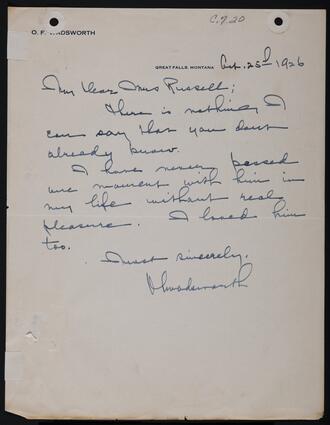 C.7.20
O. F. WADSWORTH
GREAT FALLS, MONTANA Oct. 25th 1926
My Dear Mrs Russell;
There is nothing I
can say that you dont
already know.
I have never passed
one moment with him in
my life without real
pleasure. I loved him
too.
Most sincerely,
OFWadsworth